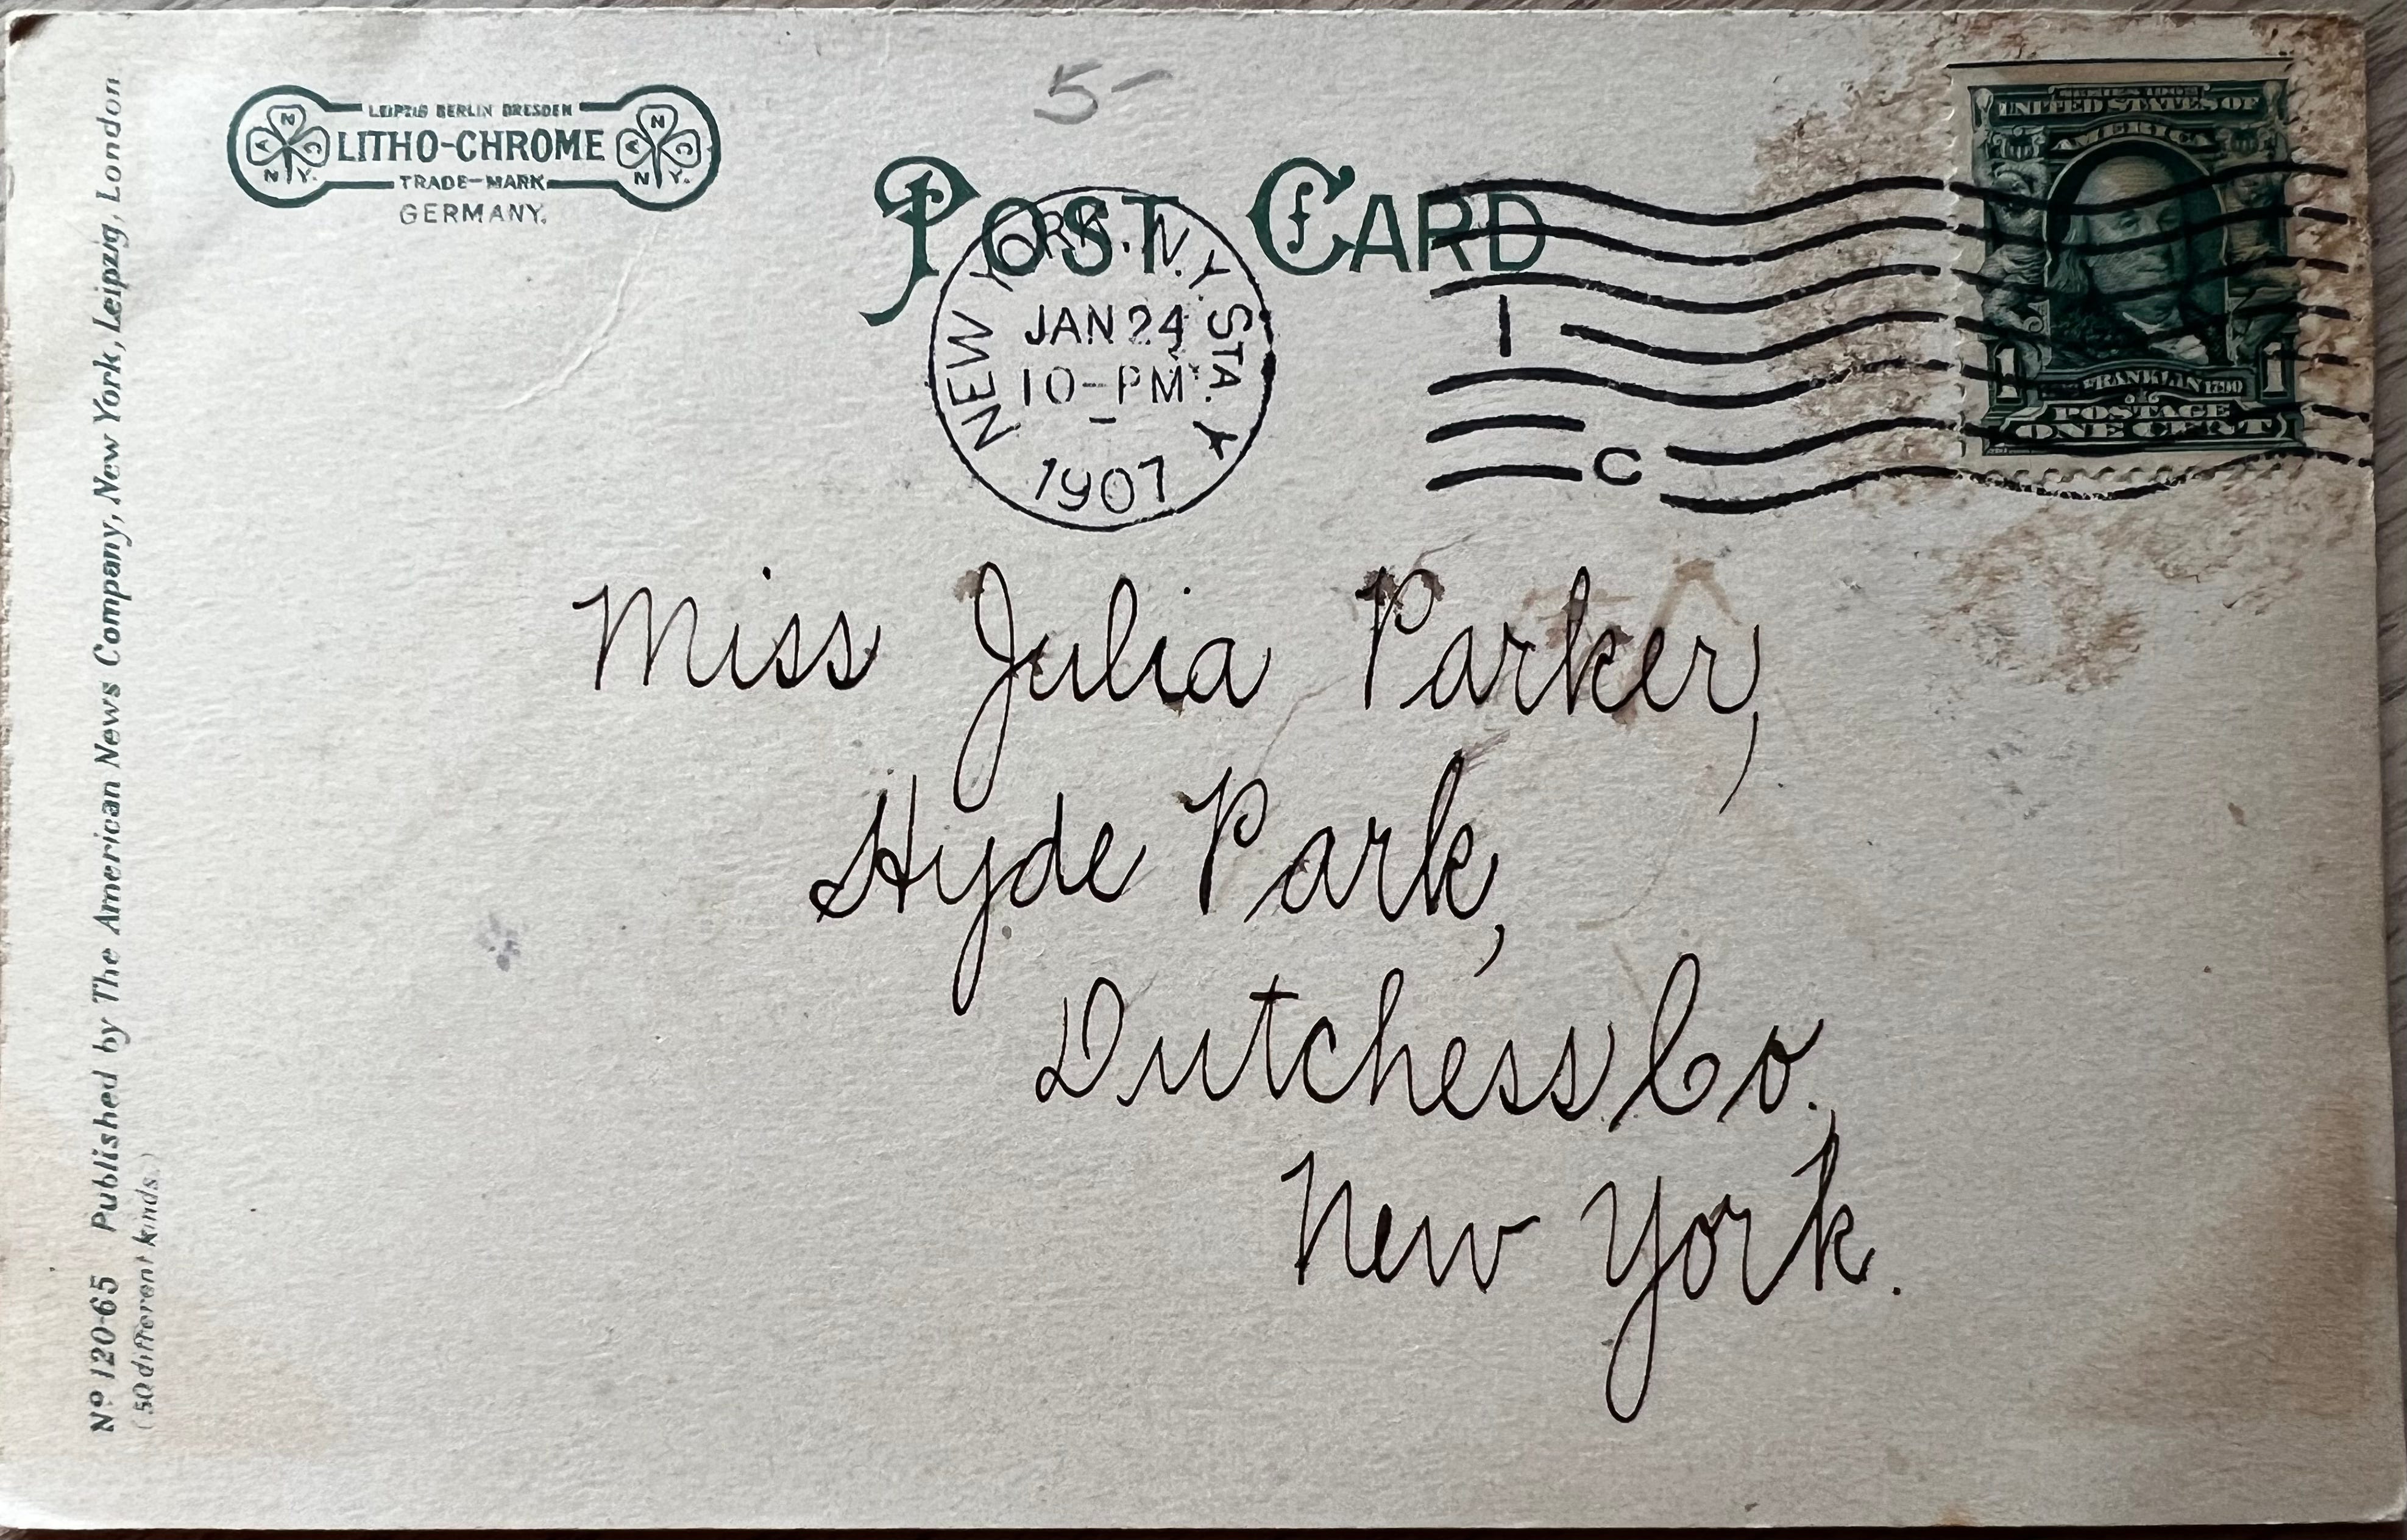 5-
LEIPZIG BERLIN DRESDEN
LITHO-CHROME
TRADE-MARK
GERMANY.
A N C
N.Y.
A N C
N.Y.
POST CARD
NEW YORK, N.Y. STA.
JAN 24
10-PM
1907
1
C
SERIES 1902
UNITED STATES OF
AMERICA
FRANKLIN 1790
1 1
POSTAGE
ONE CENT
Miss Julia Parker,
Hyde Park,
Dutchess Co.,
New York.
No 120-65 Published by The American News Company, New York, Leipzig, London
(50 different kinds.)